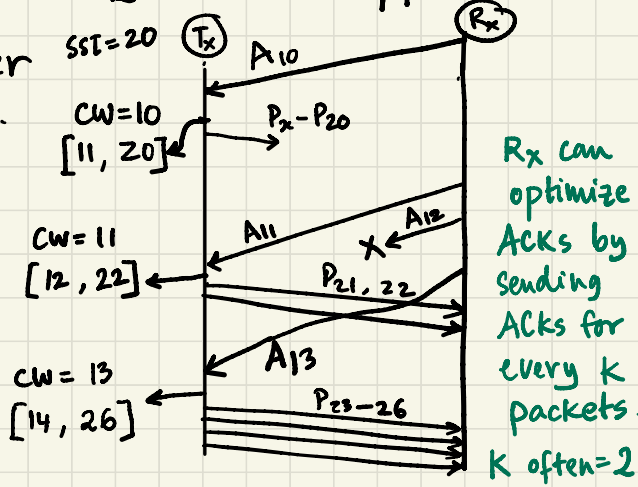 er
SST=20
Tx
Rx
A10
CW=10
[11, 20]
Px-P20
A11
A12
X
CW=11
[12, 22]
P21, 22
A13
CW= 13
[14, 26]
P23-26
Rx can
optimize
ACKs by
sending
ACKs for
every K
packets.
K often=2